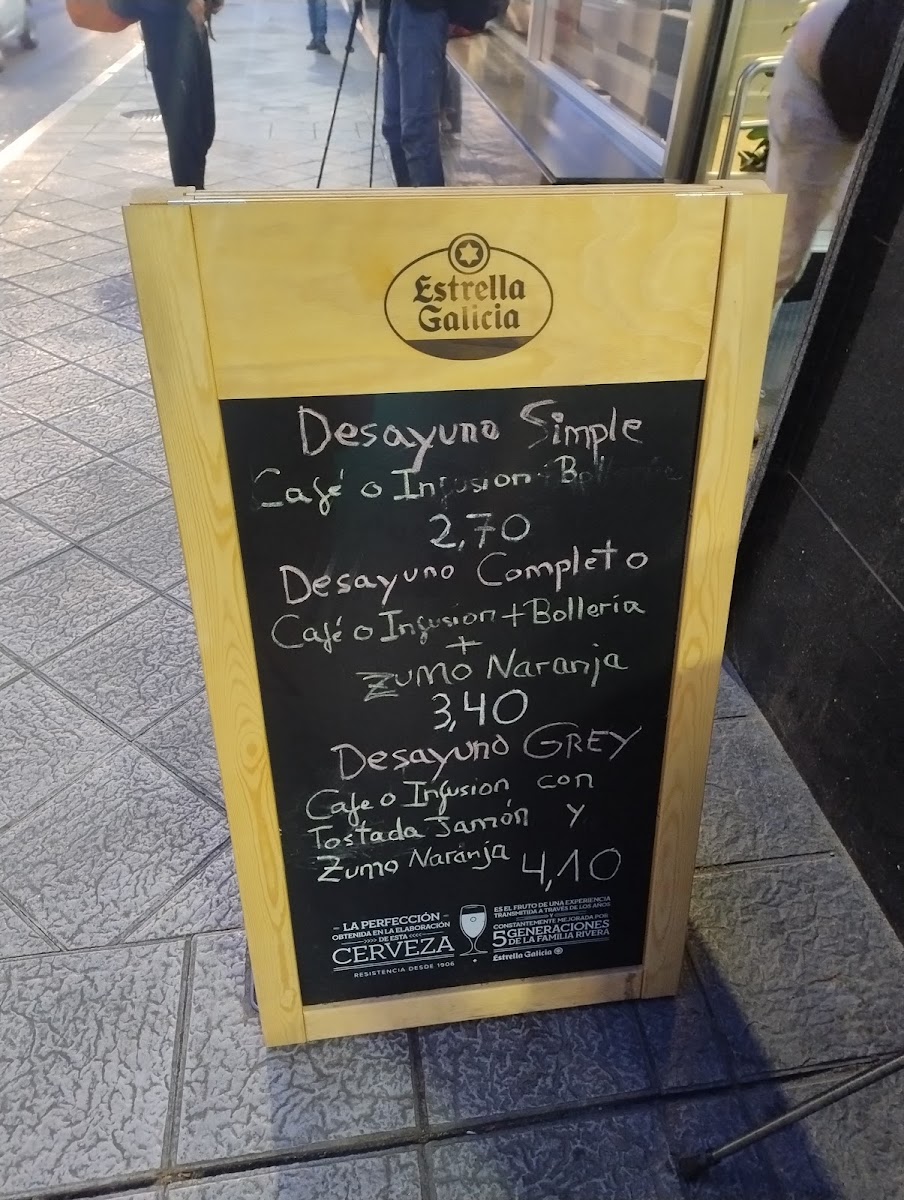 Estrella
Galicia
Desayuno Simple
Café o Infusion + Bollería
2,70
Desayuno Completo
Café o Infusion + Bollería
+
Zumo Naranja
3,40
Desayuno GREY
Cafe o Infusion con
Tostada Jamón y
Zumo Naranja 4,10
LA PERFECCIÓN
OBTENIDA EN LA ELABORACIÓN
DE ESTA
CERVEZA
RESISTENCIA DESDE 1906
ES EL FRUTO DE UNA EXPERIENCIA
TRANSMITIDA A TRAVÉS DE LOS AÑOS
Y
CONSTANTEMENTE MEJORADA POR
5 GENERACIONES
DE LA FAMILIA RIVERA
Estrella Galicia